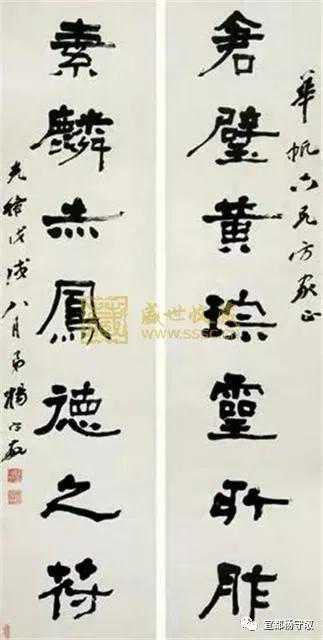 華帆六兄方家正
倉璧黃琮靈所胙
素麟赤鳳德之符
光緒戊戌八月弟楊守敬
盛世收藏
www.sssc.cn
宜都杨守敬